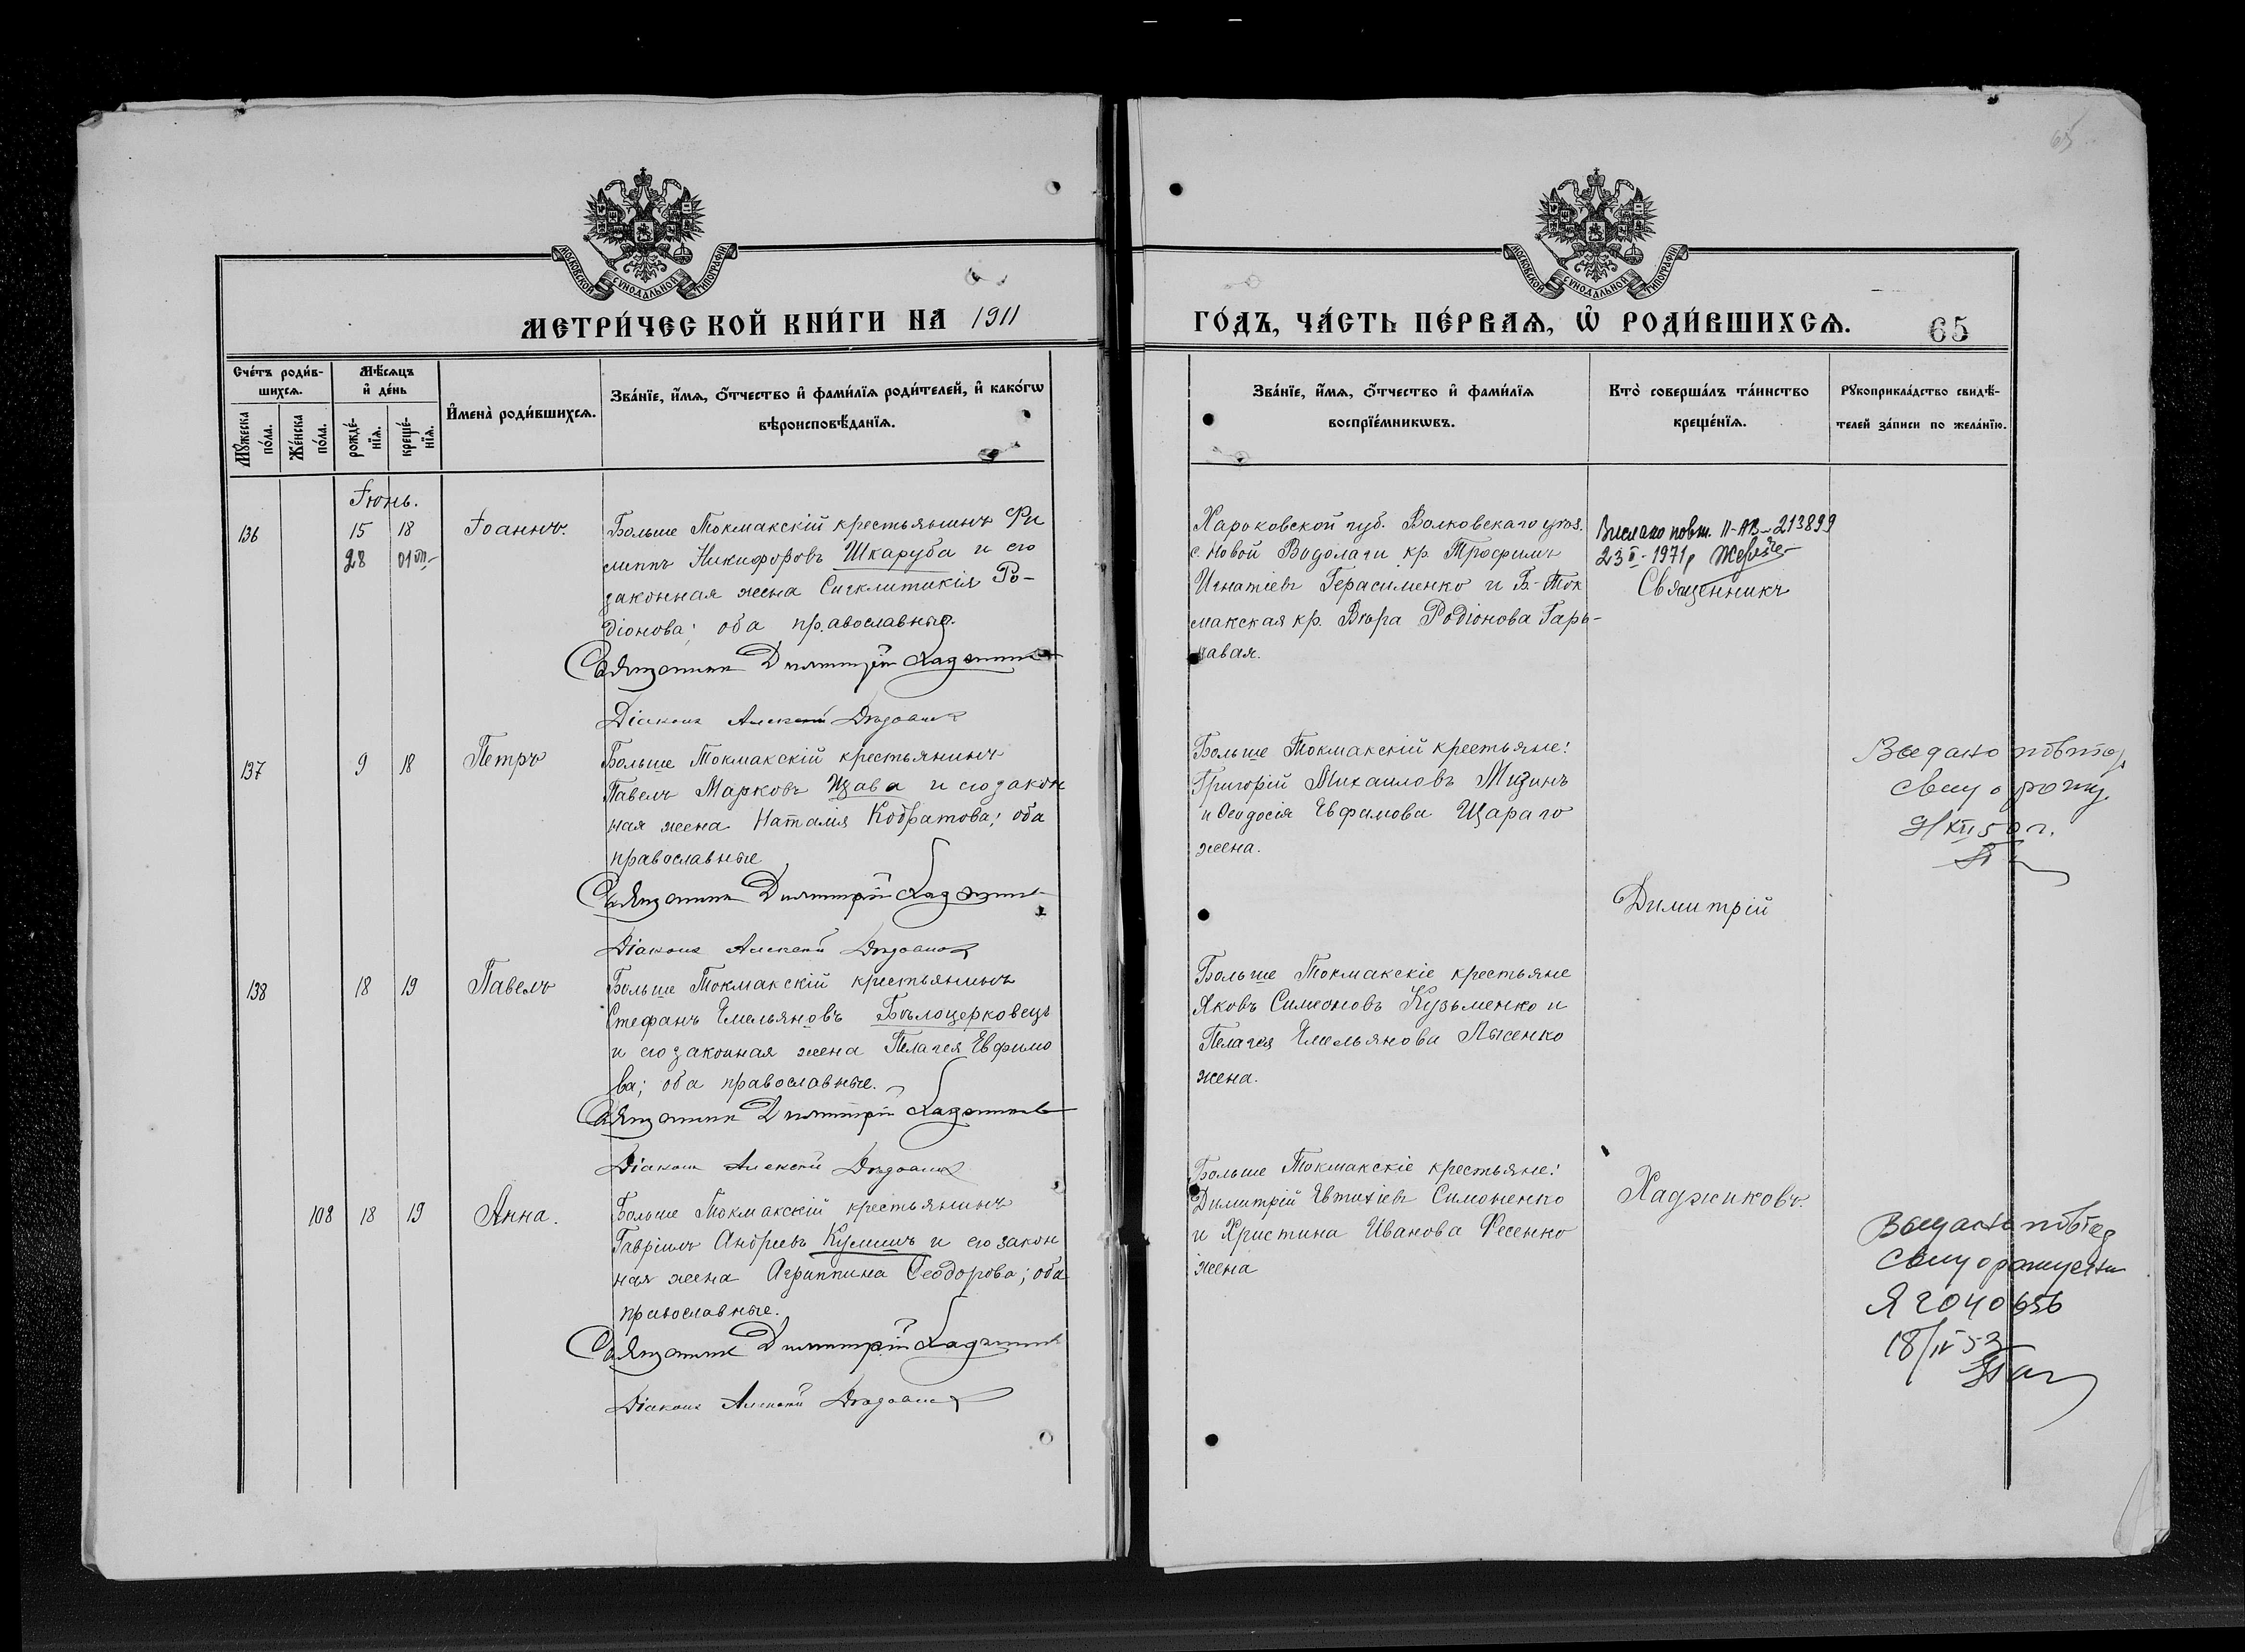 65
МОСКОВСКОЙ СѴНОДАЛЬНОЙ ТИПОГРАФІИ
МЕТРИ́ЧЕСКОЙ КНИ́ГИ НА 1911
Сче́тъ роди́в-
шихсѧ.
Мꙋ́жеска
по́ла.
Же́нска
по́ла.
Мѣ́сѧцъ
и҆ де́нь
рожде́-
нїѧ.
креще́-
нїѧ.
И҆мена̀ роди́вшихсѧ.
Зва́нїе, и҆́мѧ, ѻ҆́тчество и҆ фами́лїѧ роди́телей, и҆ како́гѡ
вѣроисповѣ́данїѧ.
Іюнь.
136
15
18
28
01 VII
Іоаннъ.
Больше Токмакскій крестьянинъ Фи
липпъ Никифоровъ Шкаруба и его
законная жена Сигклитикія Ро-
діонова; оба православные.
Священникъ Димитрій Хаджиковъ
Діаконъ Алексѣй
137
9
18
Петръ
Больше Токмакскій крестьянинъ
Павелъ Марковъ Щава и его закон
ная жена Наталія Кодратова; оба
православные
Священникъ Димитрій Хаджиковъ
Діаконъ Алексѣй
138
18
19
Павелъ
Больше Токмакскій крестьянинъ
Стефанъ Емельяновъ Бѣлоцерковецъ
и его законная жена Пелагея Евфимо
ва; оба православные.
Священникъ Димитрій Хаджиковъ
Діаконъ Алексѣй
108
18
19
Анна.
Больше Токмакскій крестьянинъ
Гавріилъ Андреевъ Кулишъ и его закон
ная жена Агриппина Ѳеодорова; оба
православные.
Священникъ Димитрій Хаджиковъ
Діаконъ Алексѣй
МОСКОВСКОЙ СѴНОДАЛЬНОЙ ТИПОГРАФІИ
ГО́ДЪ, ЧА́СТЬ ПЕ́РВАѦ, Ѡ҆ РОДИ́ВШИХСѦ.
65
Зва́нїе, и҆́мѧ, ѻ҆́тчество и҆ фами́лїѧ
воспрїе́мникѡвъ.
Кто̀ соверша́лъ та́инство
креще́нїѧ.
Рꙋкоприкла́дство свидѣ́-
телей за́писи по жела́нїю.
Харьковской губ. Волковскаго уѣз.
с. Новой Водолаги кр. Трофимъ
Игнатіевъ Герасименко и Б-Ток
макская кр. Вѣра Родіонова Гарь-
кавая.
Вислано повт. II-АП-213899
23 II-1971р
Священникъ
Больше Токмакскій крестьяне:
Григорій Михаиловъ Мизинъ
и Ѳеодосія Евфимова Щараго
жена.
Видано повтор
свид о рожд.
XII 50 г.
Димитрій
Больше Токмакскіе крестьяне
Яковъ Симеоновъ Кузьменко и
Пелагея Емельянова Лысенко
жена.
Больше Токмакскіе крестьяне:
Димитрій Евтихіевъ Симоненко
и Христина Иванова Фесенко
жена
Хаджиковъ.
Я 2040656
18/IV 53